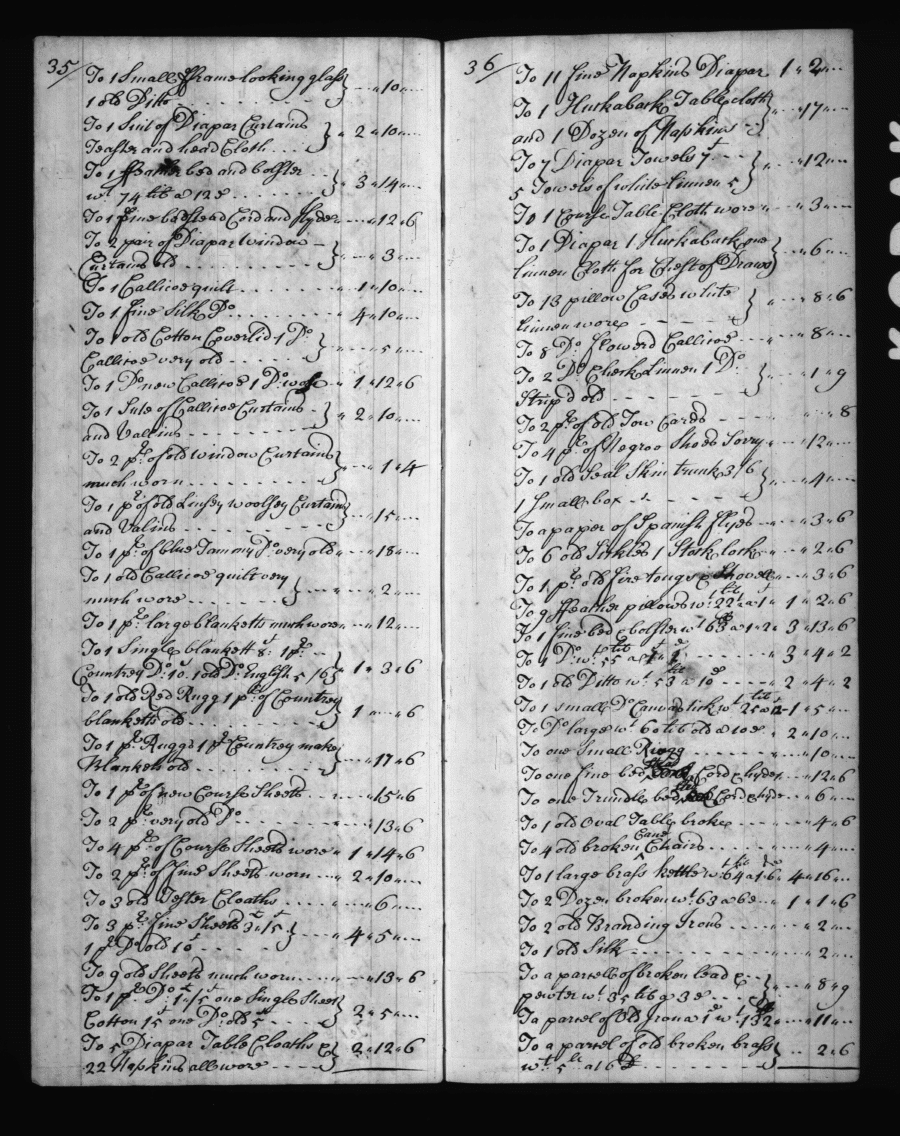 35/
To 1 Small frame looking glass
1 old Ditto } - - - " 10 " --
To 1 Suit of Diapar Curtains
Teaster and head Cloth } " 2 " 10 " --
To 1 ffeather bed and bolster
wt. 74 lib a 12d } " 3 " 14 " --
To 1 fine bedstead Cord and hyde - - " 12 " 6
To 2 pair of Diapar window
Curtains old } - - " 3 " --
To 1 Callicoe quilt - - - " 1 " 10 " --
To 1 fine Silk Do. - - - " 4 " 10 " --
To 1 old Cotton Coverlid 1 Do.
Callicoe very old } - - " 5 " --
To 1 Do new Callicoe 1 Do wose " 1 " 12 " 6
To 1 Sute of Callicoe Curtains
and Vallins } " 2 " 10 " --
To 2 pr. of old window Curtains
much worn } - - " 1 " 4
To 1 pr of old Linsey woolsey Curtains
and Valins } - - " 15 " --
To 1 pr. of blue Tammy Do very old " - - " 18 " --
To 1 old Callicoe quilt very
much wore } - - " 2 " --
To 1 pr. large blanketts much wore - - " 12 " --
To 1 Single blankett 8s. 1 pr.
Countrey Do. 10. 1 old Do. English 5/6 } 1 " 3 " 6
To 1 old Red Rugg 1 pr. of Countrey
blanketts old } 1 " -- " 6
To 1 pr. Ruggs 1 pr Countrey make
blanketts old } - - " 17 " 6
To 1 pr. of new Course Sheets - - " 15 " 6
To 2 pr. very old Do - - " 13 " 6
To 4 pr. of Course Sheets wore " 1 " 14 " 6
To 2 pr. of fine Sheets worn - - 2 " 10 " --
To 3 old Tester Cloaths - - " 6 " --
To 3 pr. fine Sheets 3 15
1 pr Do old 10s } - - 4 " 5 " --
To 9 old Sheets much worn - - " 13 " 6
To 1 pr. Do 1 15 one Single Sheet
Cotton 15s one Do. old 5s } 2 " 5 " --
To 5 Diapar Table Cloaths &
22 Napkins all wore } 2 " 12 " 6
36/
To 11 fine Napkins Diapar 1 " 2 " --
To 1 Huckaback Tablecloth
and 1 Dozen of Napkins } " - " 17 " --
To 7 Diapar Towels 7s
5 Towels of white Linnen 5 } " - " 12 " --
To 1 Course Table Cloth wore " - " 3 " --
To 1 Diapar 1 Huckaback one
linnen Cloth for Chest of Draws } " - " 6 " --
To 13 pillow Cases white
linnen wore } " - " 8 " 6
To 8 Do flowerd Callicoe - - " 8 " --
To 2 Do Check Linnen 1 Do
Strip'd old } - - " 1 " 9
To 2 pr of old Tow Cards - - " - " 8
To 4 pr. of Negroe Shoes Sorry - - " 12 " --
To 1 old Seal Skin trunk 3/6
1 Small box } - - " 4 " --
To a paper of Spanish flyes - - " 3 " 6
To 6 old Sickles 1 Stock lock - - " 2 " 6
To 1 pr. old fire tongs & Shovell - - " 3 " 6
To 9 ffeather pillows wt. 22 lib a 1s " 1 " 2 " 6
To 1 fine bed & bolster wt 63 a 1 " 2 " 3 " 13 " 6
To 1 Do. wt. 55 lib a 1s 2d - - " 3 " 4 " 2
To 1 old Ditto wt. 53 lib a 10d - - 2 " 4 " 2
To 1 small Do Canvas tick wt 25 lib a 12 - 1 " 5 " --
To Do large wt 60 lib old a 10d - 2 " 10 " --
To one Small Rugg - - " 10 " --
To one fine bed Stead Cord & hyde - - " 12 " 6
To one Trundle bed Cord & hyde - - " 6 " --
To 1 old Oval Table broke - - " 4 " 6
To 4 old broken Cane Chairs - - " 4 " --
To 1 large brass kettle wt. 64 lib a 1s 6d 4 " 16 " --
To 2 Dozen broken wt. 63 a 6d - - 1 " 1 " 6
To 2 old Branding Irons - - " 2 " --
To 1 old Silk - - " 2 " --
To a parcel of broken lead &
pewter wt. 35 lib a 3d } - - " 8 " 9
To a parcel of Old Iron a 1d wt. 132 lb - - " 11 " --
To a parcel of old broken brass
wt. 5 lb at 6d } - - " 2 " 6
KODAK